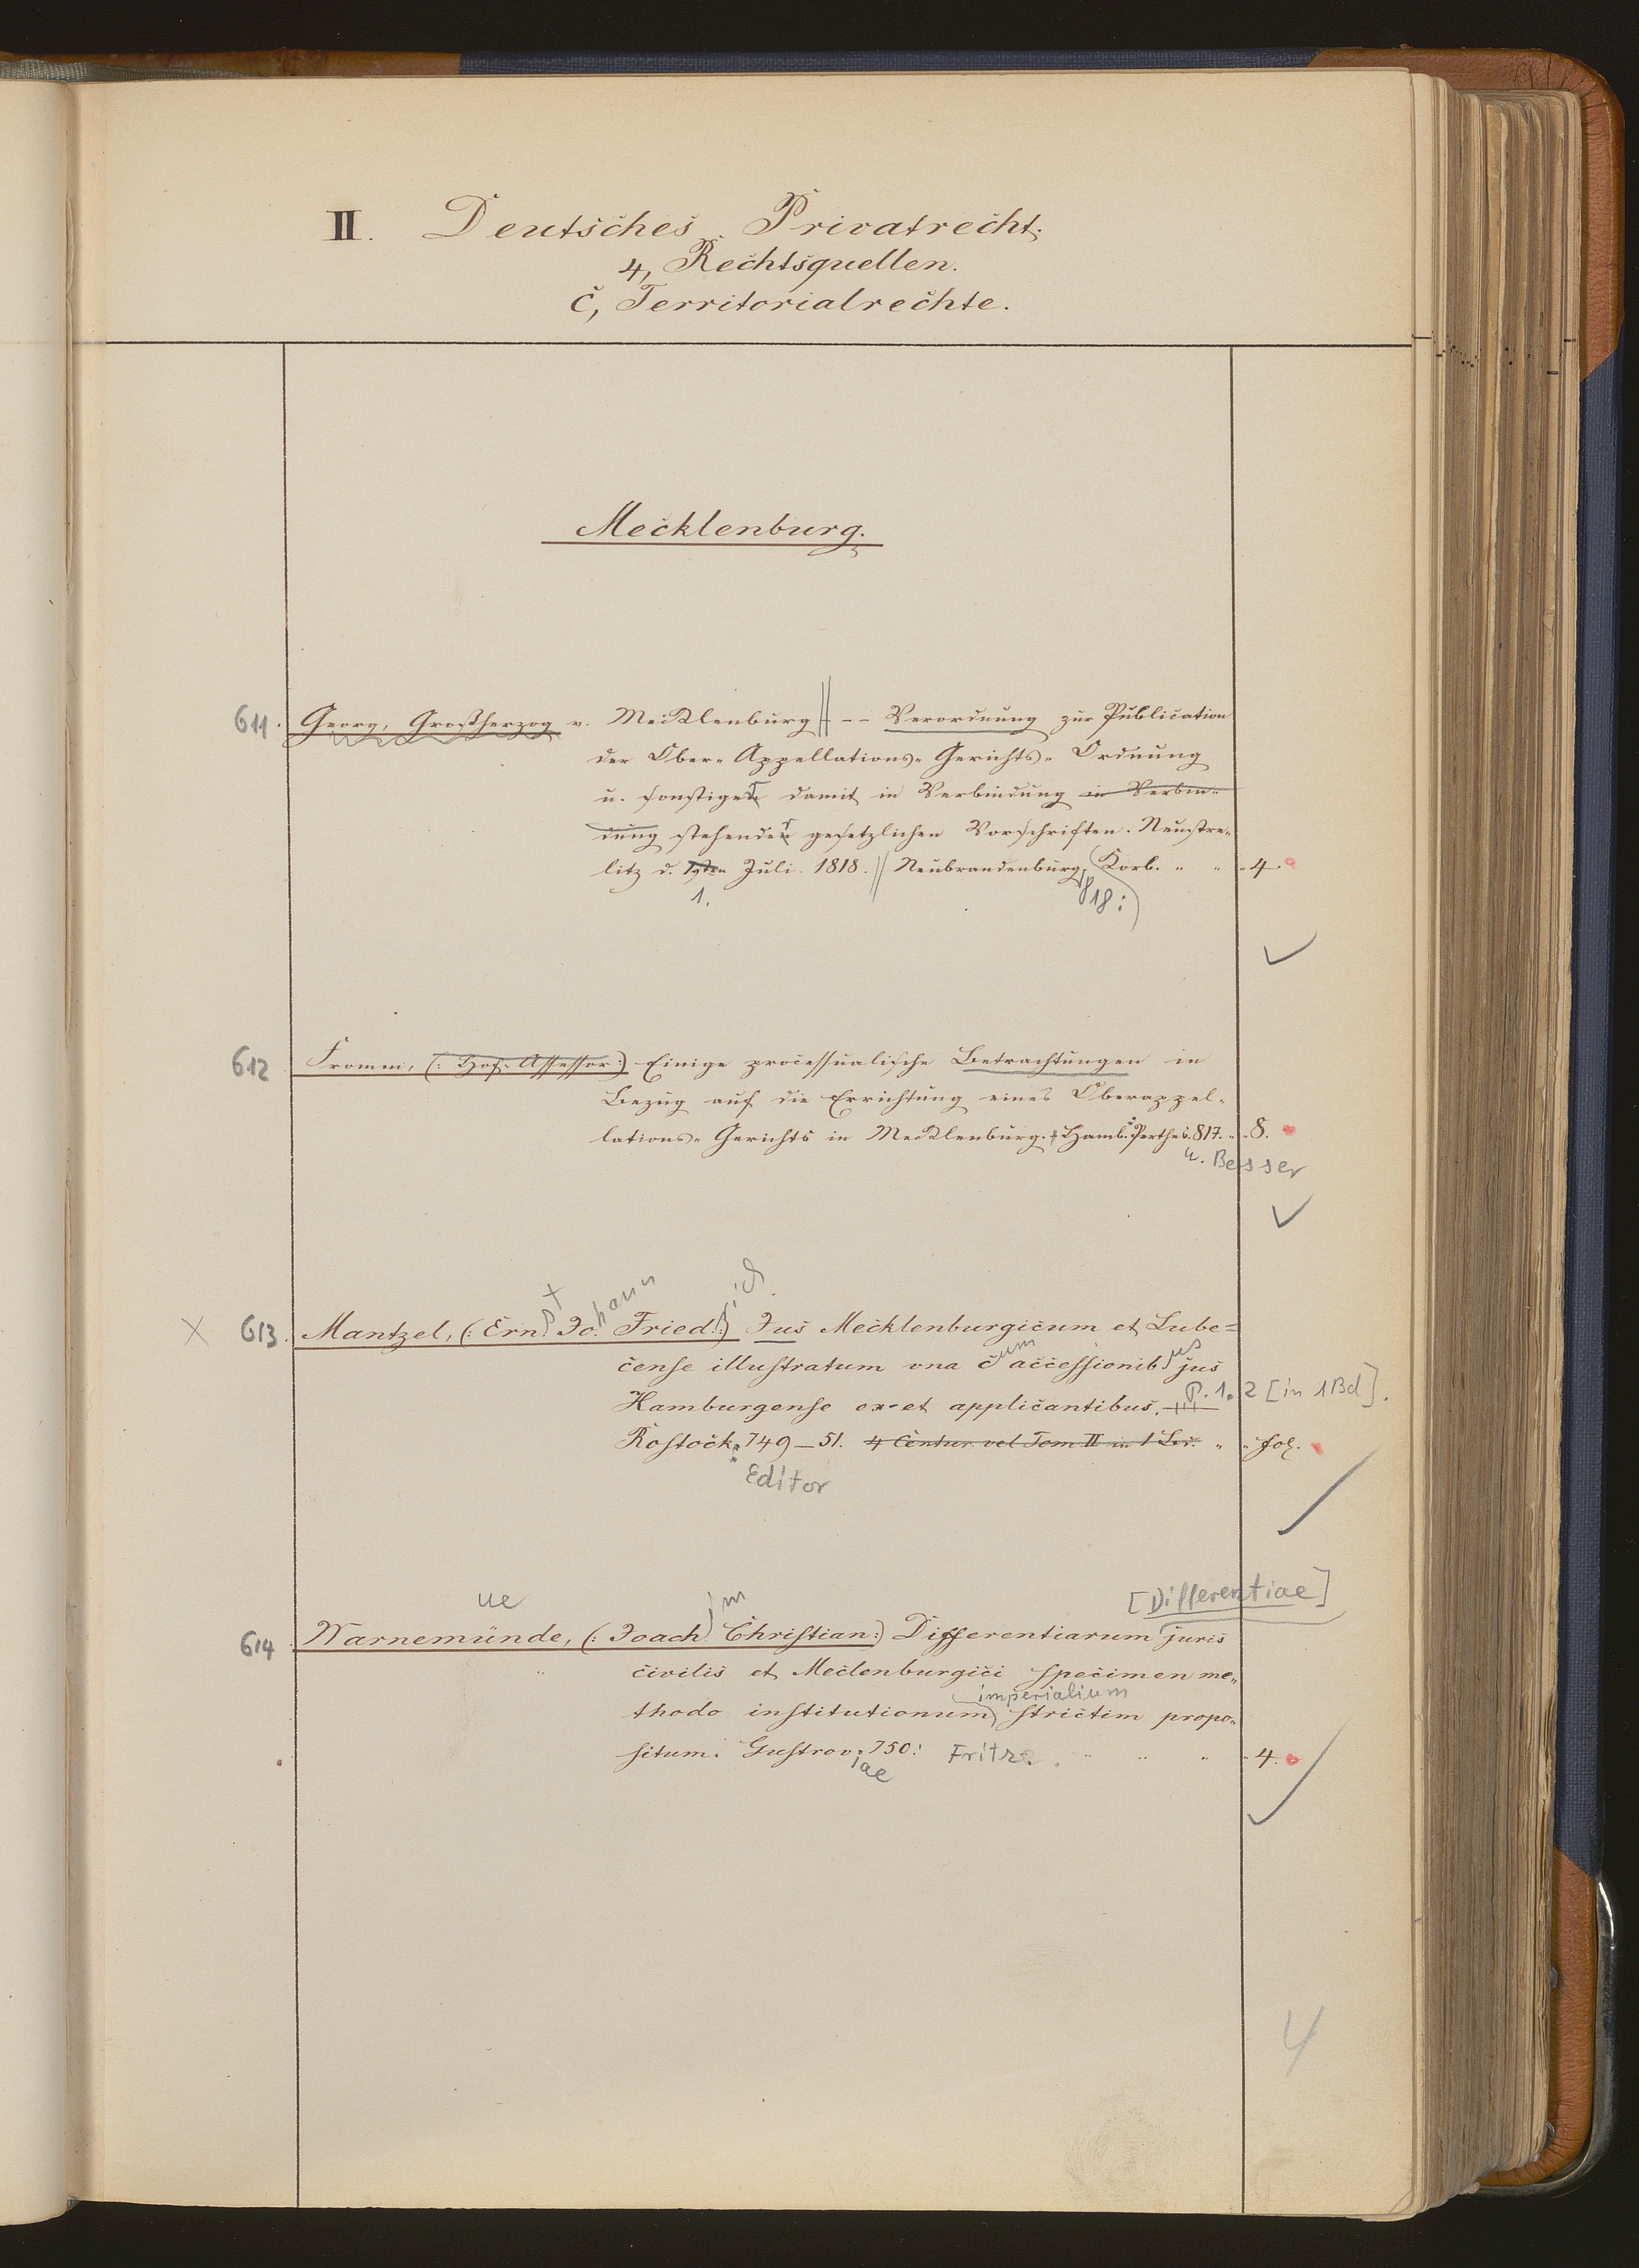 II. Deutsches Privatrecht.
4, Rechtsquellen.
c, Territorialrechte.
Mecklenburg.
611. Georg, Großherzog v. Mecklenburg -- Verordnung zur Publication
der Ober-Appellations-Gerichts-Ordnung
u. sonstiger damit in Verbindung in Verbin-
dung stehender gesetzlichen Vorschriften. Neustre-
litz d. Juli. 1818. Neubrandenburg, Korb. " " " 4.
1. 818:)
612 Fromm, (: Hof-Assessor:) Einige processualische Betrachtungen in
Bezug auf die Errichtung eines Oberappel-
lations-Gerichts in Mecklenburg. Hamb: Perthes. 817. " " 8.
u. Besser
st hann rich
X 613. Mantzel, (: Ern Jo. Fried:) Jus Mecklenburgicum et Lube=
um us
cense illustratum una c accessionib jus
P. 1. 2 [in 1 Bd].
Hamburgense ex=et applicantibus.
Rostock: 749–51. 4 Centur. vel Tom II in 1 " " fol.
Editor
ue im [Differentiae]
614 Warnemünde, (: Joach Christian:) Differentiarum juris
civilis et Meclenburgici specimen me-
imperialium
thodo institutionum strictim propo-
situm. Gustrov. 750: Fritze. " " " " 4.
iae
4